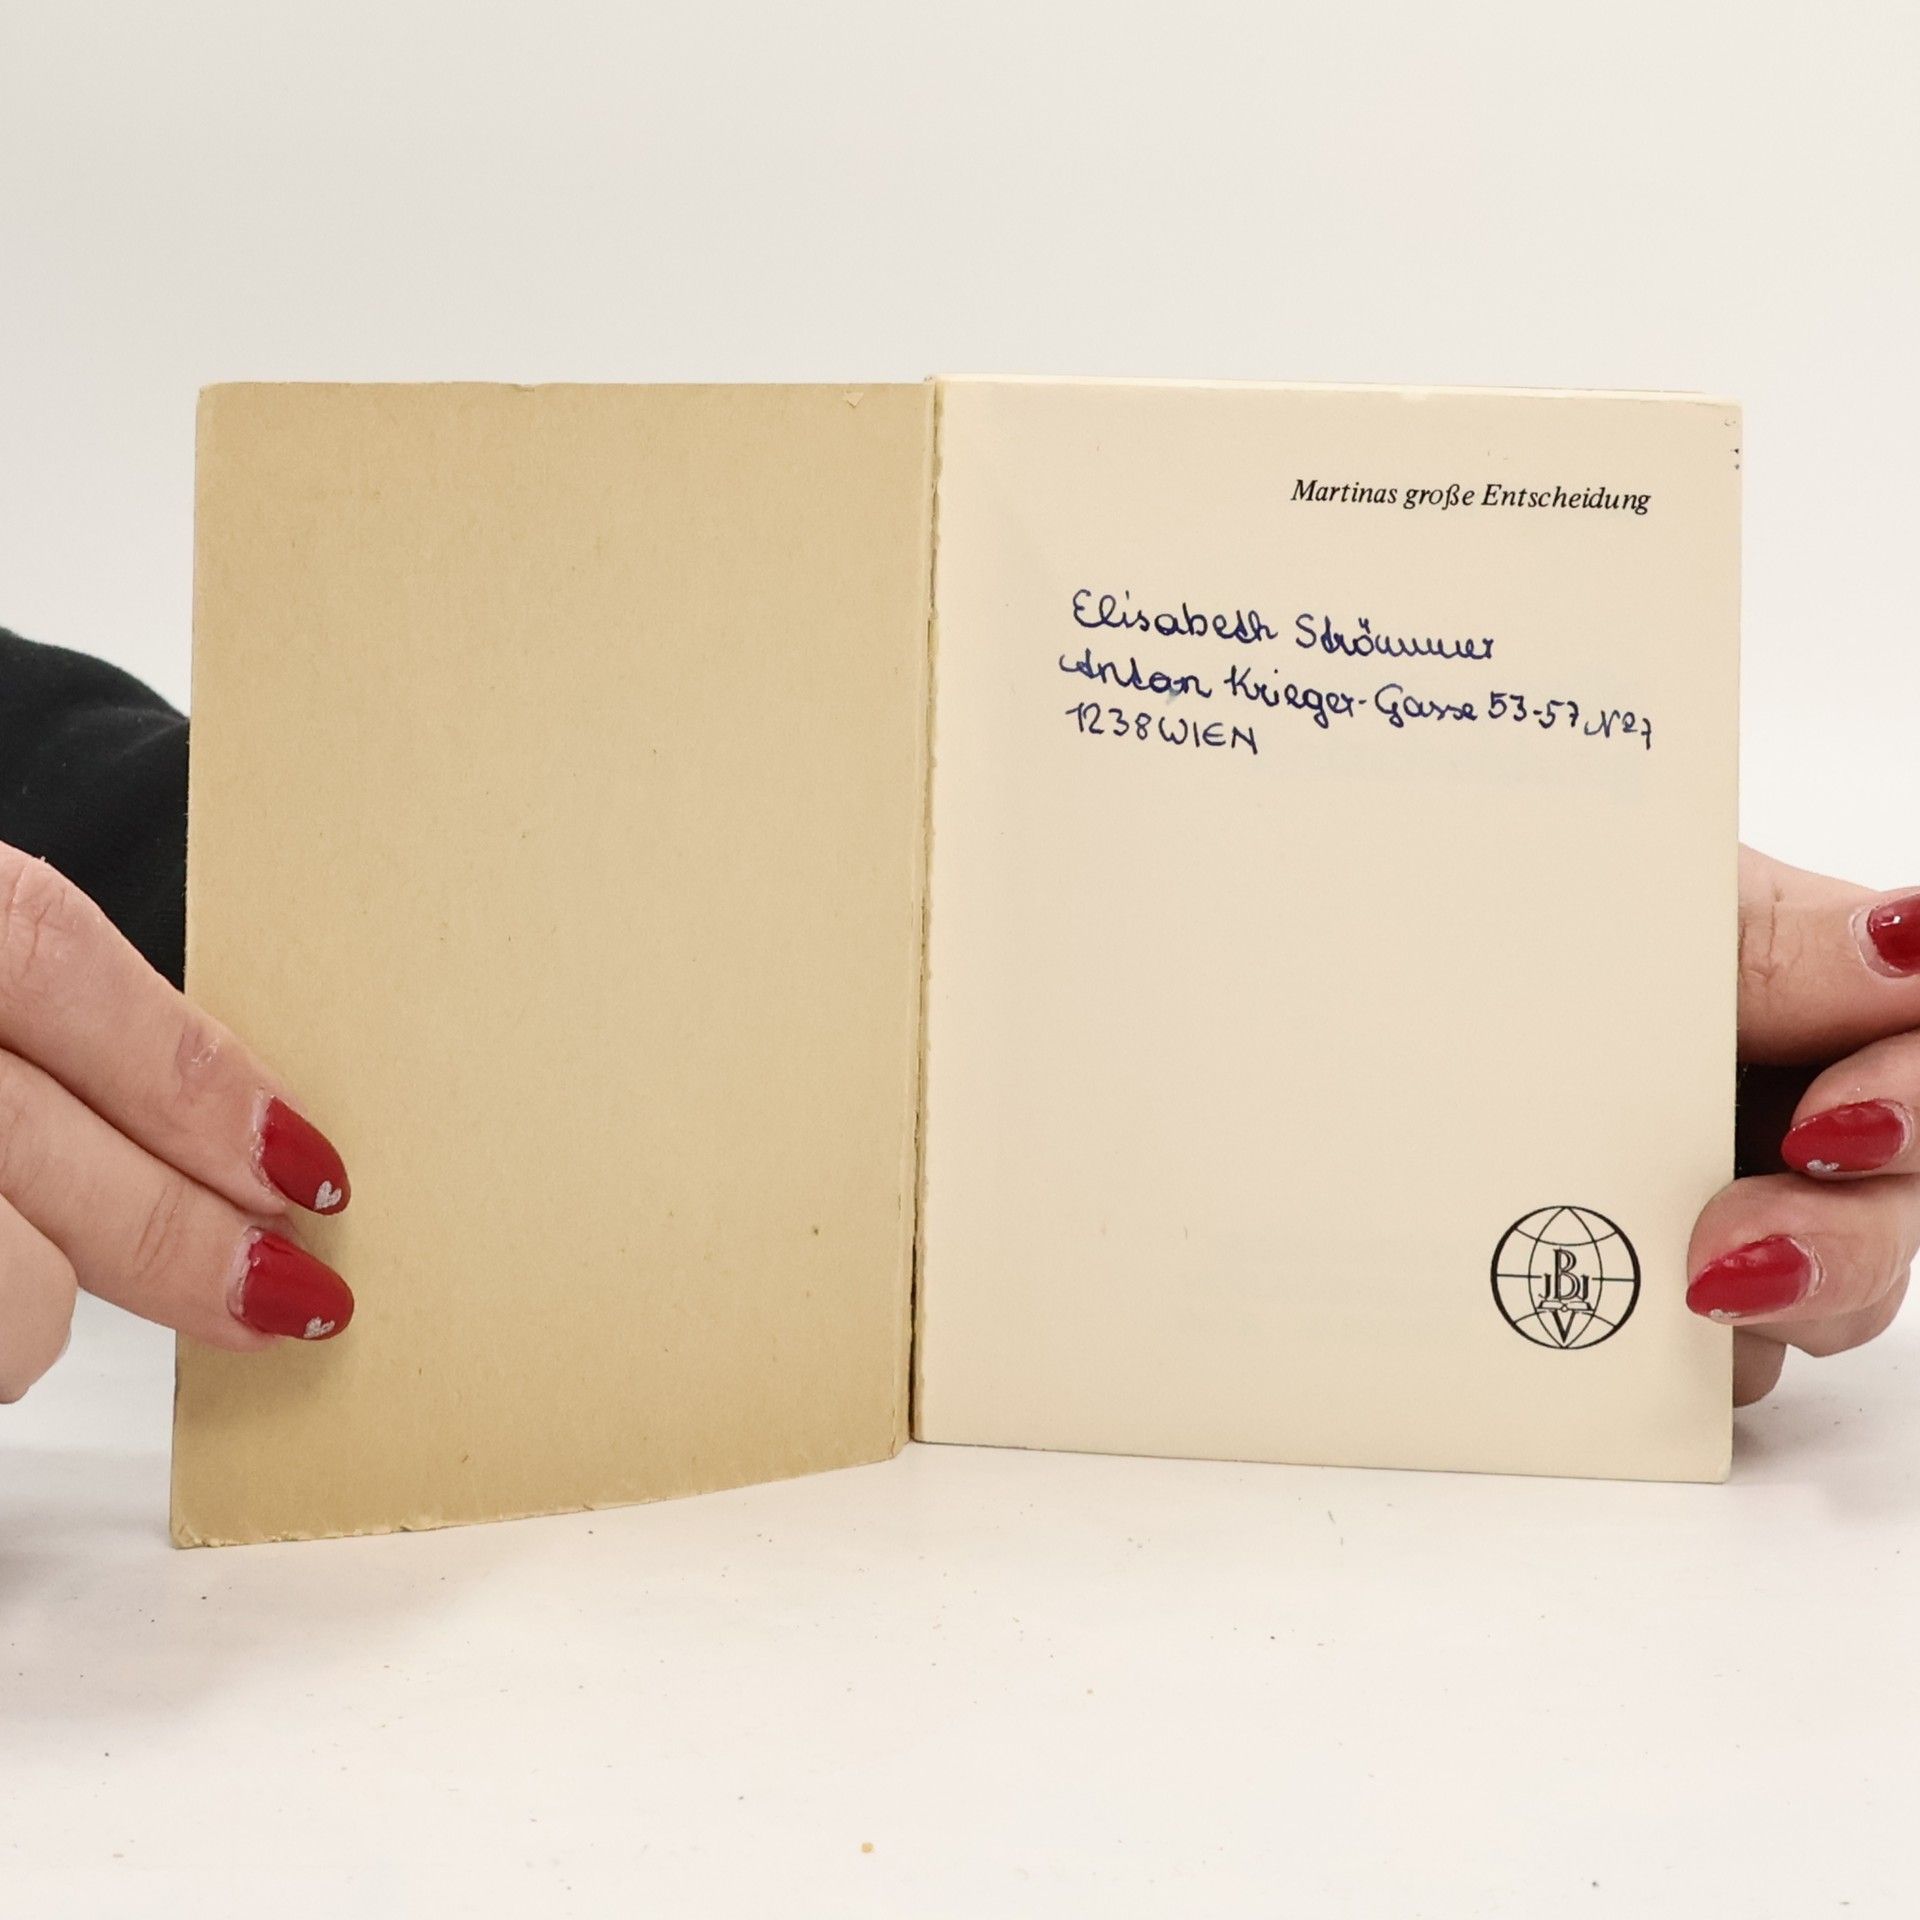 Martinas große Entscheidung
Elisabeth Strömmer
Anton Krieger-Gasse 53-57 N27
1238 WIEN
JBJ
V